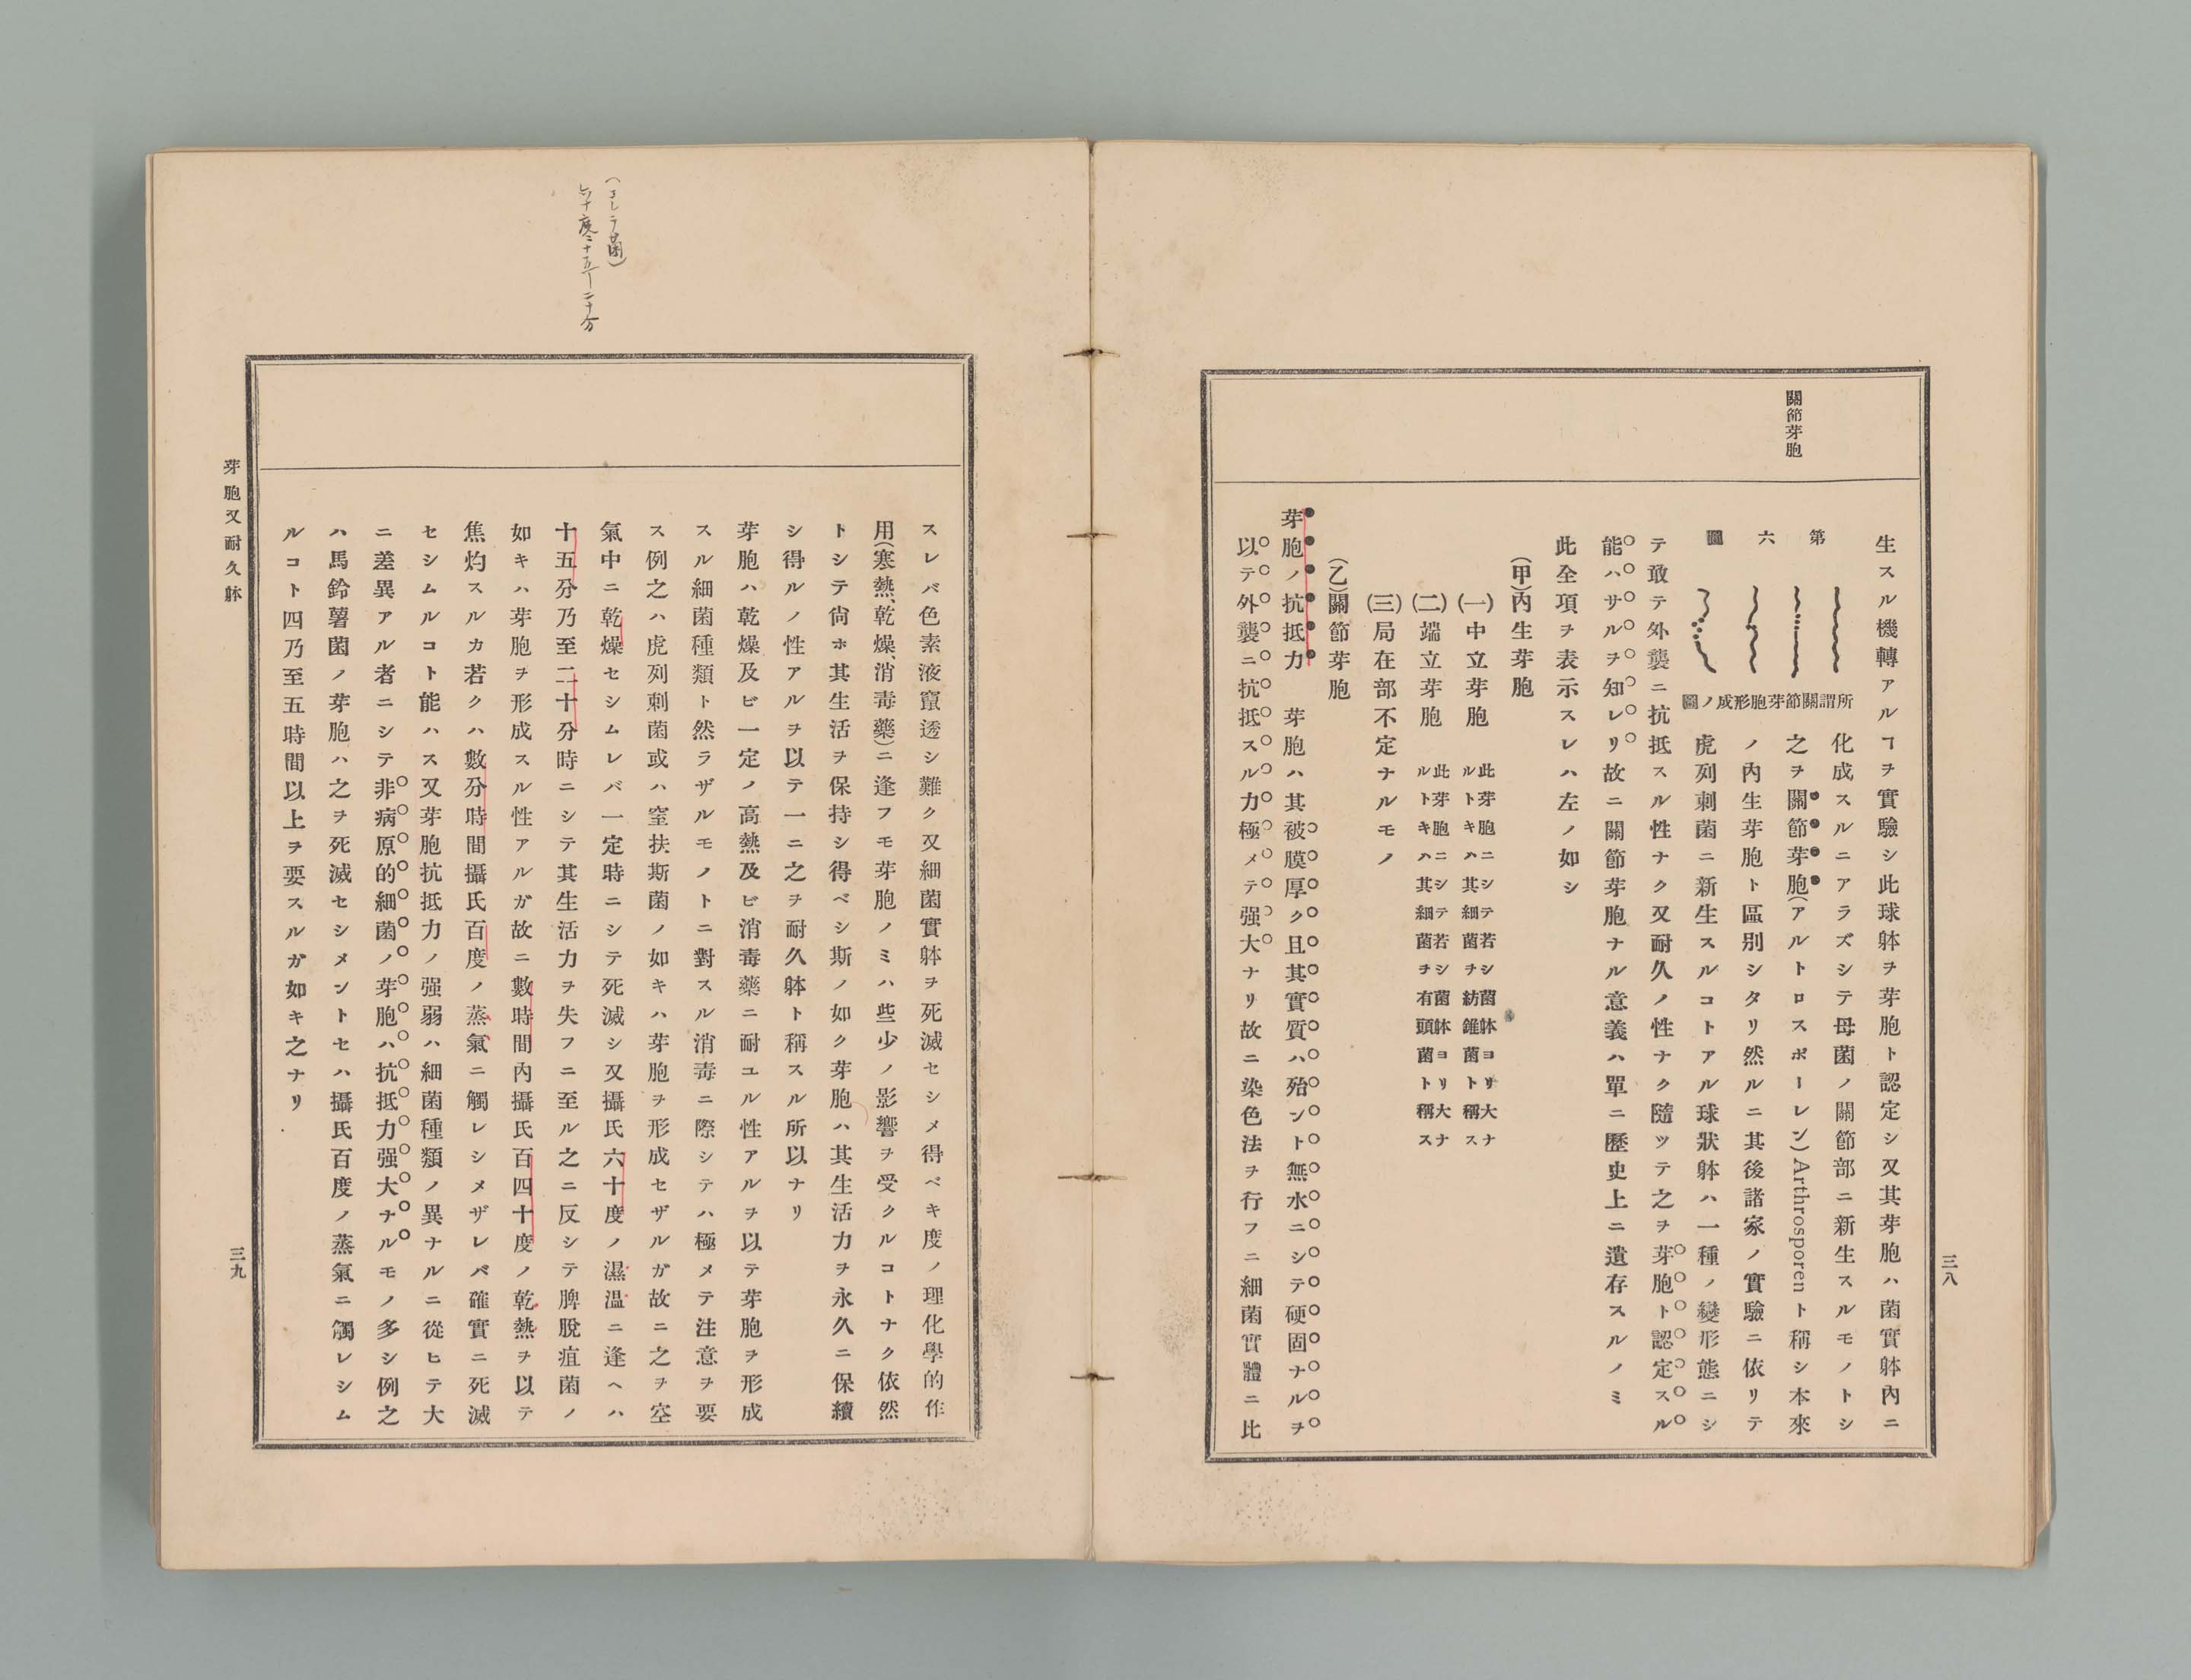 關節芽胞
三八
生スル機轉アルヿヲ實驗シ此球躰ヲ芽胞ト認定シ又其芽胞ハ菌實躰內ニ
第六圖
所謂關節芽胞形成ノ圖
化成スルニアラズシテ母菌ノ關節部ニ新生スルモノトシ
之ヲ關節芽胞(アルトロスポーレン)Arthrosporenト稱シ本來
ノ內生芽胞ト區別シタリ然ルニ其後諸家ノ實驗ニ依リテ
虎列刺菌ニ新生スルコトアル球狀躰ハ一種ノ變形態ニシ
テ敢テ外襲ニ抗抵スル性ナク又耐久ノ性ナク隨ツテ之ヲ芽胞ト認定スル
能ハサルヲ知レリ故ニ關節芽胞ナル意義ハ單ニ歷史上ニ遺存スルノミ
此全項ヲ表示スレハ左ノ如シ
(甲)內生芽胞
(一)中立芽胞 此芽胞ニシテ若シ菌躰ヨリ大ナ
ルトキハ其細菌ヲ紡錐菌ト稱ス
(二)端立芽胞 此芽胞ニシテ若シ菌躰ヨリ大ナ
ルトキハ其細菌ヲ有頭菌ト稱ス
(三)局在部不定ナルモノ
(乙)關節芽胞
芽胞ノ抗抵力 芽胞ハ其被膜厚ク且其實質ハ殆ント無水ニシテ硬固ナルヲ
以テ外襲ニ抗抵スル力極メテ强大ナリ故ニ染色法ヲ行フニ細菌實體ニ比
(コレラ菌)
六十度二十五ー二十分
スレバ色素液竄透シ難ク又細菌實躰ヲ死滅セシメ得ベキ度ノ理化學的作
用(寒熱、乾燥、消毒藥)ニ逢フモ芽胞ノミハ些少ノ影響ヲ受クルコトナク依然
トシテ尙ホ其生活ヲ保持シ得ベシ斯ノ如ク芽胞ハ其生活力ヲ永久ニ保續
シ得ルノ性アルヲ以テ一ニ之ヲ耐久躰ト稱スル所以ナリ
芽胞ハ乾燥及ビ一定ノ高熱及ビ消毒藥ニ耐ユル性アルヲ以テ芽胞ヲ形成
スル細菌種類ト然ラザルモノトニ對スル消毒ニ際シテハ極メテ注意ヲ要
ス例之ハ虎列刺菌或ハ窒扶斯菌ノ如キハ芽胞ヲ形成セザルガ故ニ之ヲ空
氣中ニ乾燥セシムレバ一定時ニシテ死滅シ又攝氏六十度ノ濕溫ニ逢ヘハ
十五分乃至二十分時ニシテ其生活力ヲ失フニ至ル之ニ反シテ脾脫疽菌ノ
如キハ芽胞ヲ形成スル性アルガ故ニ數時間內攝氏百四十度ノ乾熱ヲ以テ
焦灼スルカ若クハ數分時間攝氏百度ノ蒸氣ニ觸レシメザレバ確實ニ死滅
セシムルコト能ハス又芽胞抗抵力ノ强弱ハ細菌種類ノ異ナルニ從ヒテ大
ニ差異アル者ニシテ非病原的細菌ノ芽胞ハ抗抵力强大ナルモノ多シ例之
ハ馬鈴薯菌ノ芽胞ハ之ヲ死滅セシメントセハ攝氏百度ノ蒸氣ニ觸レシム
ルコト四乃至五時間以上ヲ要スルガ如キ之ナリ
芽胞又耐久躰
三九